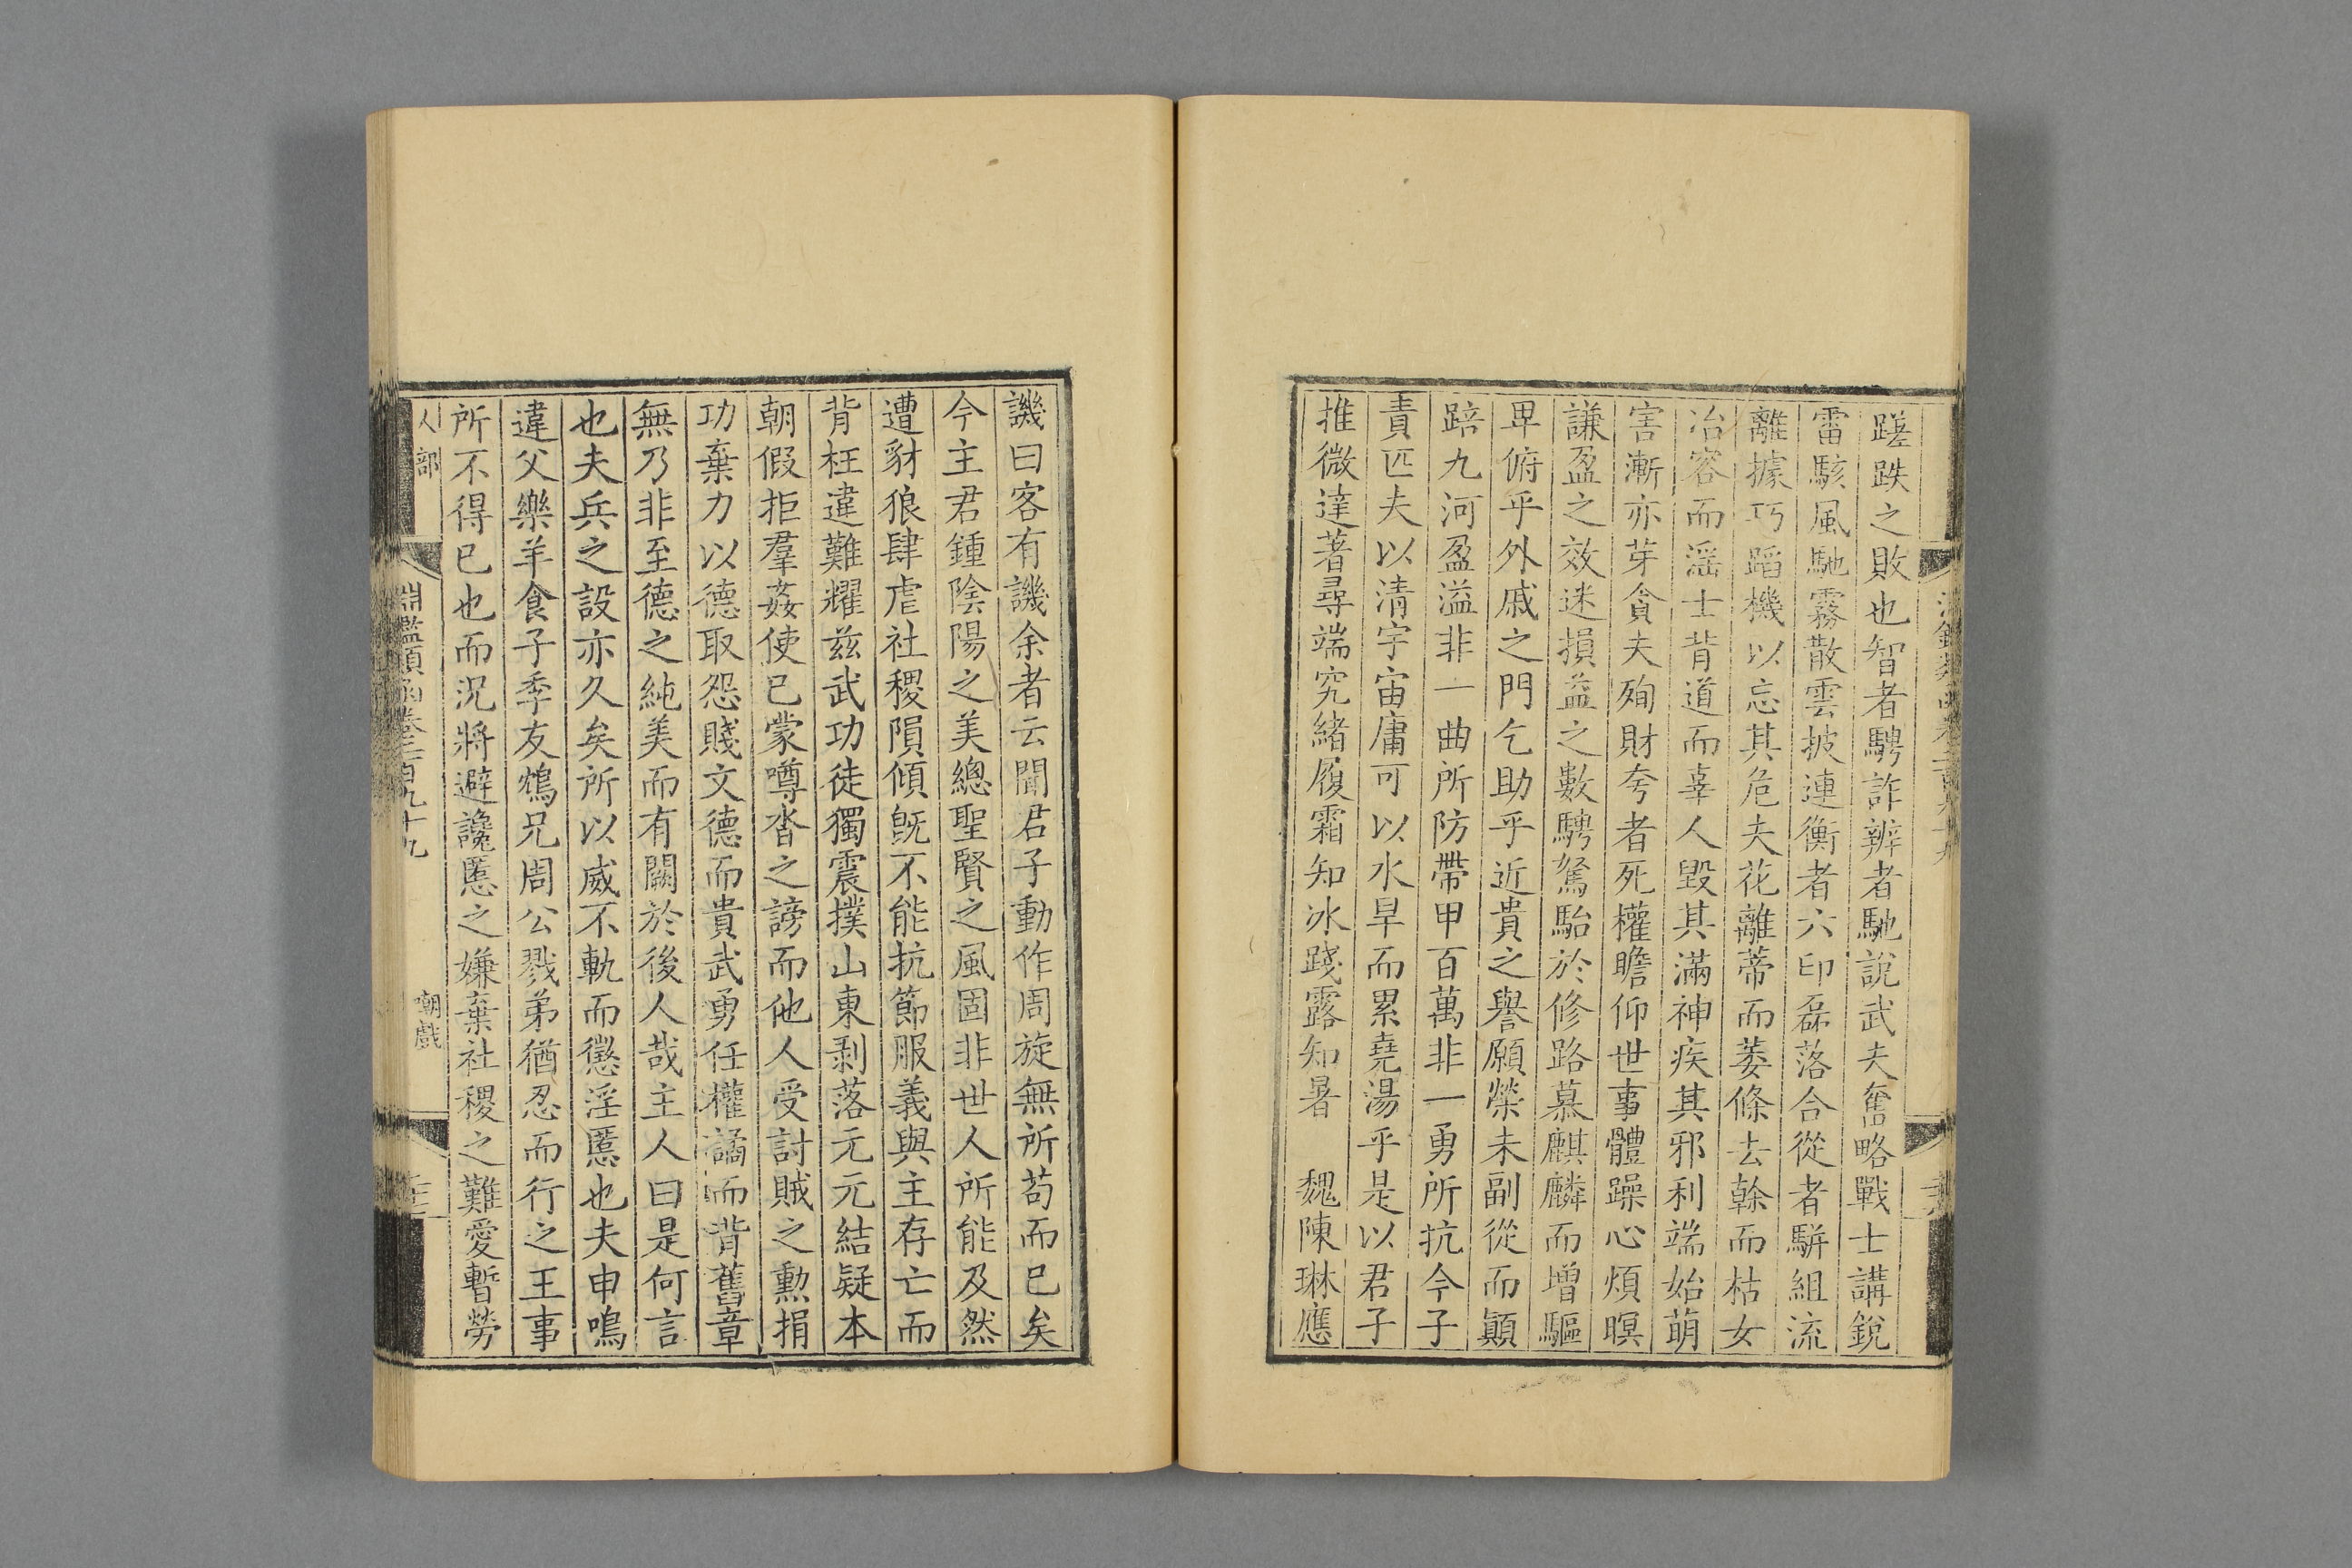 蹉跌之敗也智者騁詐辨者馳說武夫奮略戰士講銳
雷駭風馳霧散雲披連衡者六印磊落合從者駢組流
離據巧蹈機以忘其危夫花離蒂而萎條去榦而枯女
冶容而淫士背道而辜人毀其滿神疾其邪利端始萌
害漸亦芽貪夫殉財夸者死權瞻仰世事體躁心煩暝
謙盈之效迷損益之數騁駑駘於修路慕麒麟而增驅
卑俯乎外戚之門乞助乎近貴之譽願榮未副從而顚
踣九河盈溢非一曲所防帶甲百萬非一勇所抗今子
責匹夫以清宇宙庸可以水旱而累堯湯乎是以君子
推微達著尋端究緒履霜知冰踐露知暑　魏陳琳應
譏曰客有譏余者云聞君子動作周旋無所苟而已矣
今主君鍾陰陽之美總聖賢之風固非世人所能及然
遭豺狼肆虐社稷隕傾旣不能抗節服義與主存亡而
背枉違難耀茲武功徒獨震撲山東剥落元元結疑本
朝假拒羣姦使已蒙噂沓之謗而他人受討賊之勳捐
功棄力以德取怨賤文德而貴武勇任權譎而背舊章
無乃非至德之純美而有闕於後人哉主人曰是何言
也夫兵之設亦久矣所以威不軌而懲淫慝也夫申鳴
違父樂羊食子季友鴆兄周公戮弟猶忍而行之王事
所不得已也而況將避讒慝之嫌棄社稷之難愛暫勞
人部　淵鑑類函卷三百九十九　嘲戲